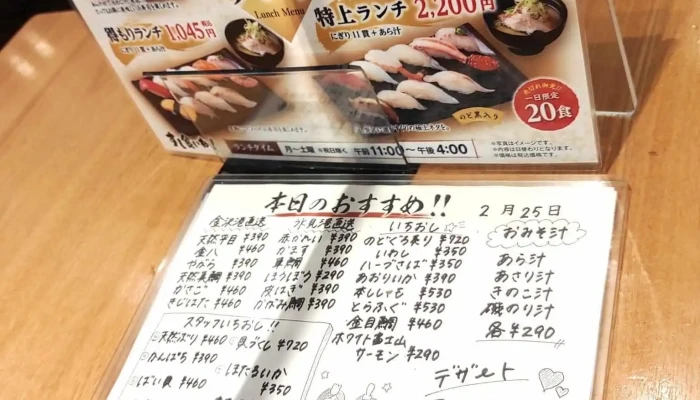 Lunch Menu
得もりランチ 1,045円 税込
にぎり11貫+あら汁
特上ランチ 2,200円
にぎり11貫+あら汁
のど黒入り
一日限定
20食
ランチタイム 月~土曜 ※祝日除く 午前11:00~午後4:00
※写真はイメージです。
※内容は日替わりとなります。
※価格は税込価格です。
本日のおすすめ!! 2月25日
金沢港直送
天然平目 ¥390
金八 ¥460
やがら ¥390
天然真鯛 ¥390
かさご ¥460
きじはた ¥460
氷見港直送
赤かれい ¥390
かます ¥390
黒鯛 ¥460
ほうぼう ¥290
皮はぎ ¥390
かがみ鯛 ¥390
いちおし
のどぐろ炙り ¥920
いわし ¥350
ハーブさば ¥350
あおりいか ¥390
本ししゃも ¥530
とらふぐ ¥530
金目鯛 ¥460
ホワイト富士山
サーモン ¥290
おみそ汁
あら汁
あさり汁
きのこ汁
磯のり汁
各¥290
スタッフいちおし!!
天然ぶり ¥460
貝づくし ¥920
かんぱち ¥390
ほたるいか
¥350
ばい貝 ¥460
デザート